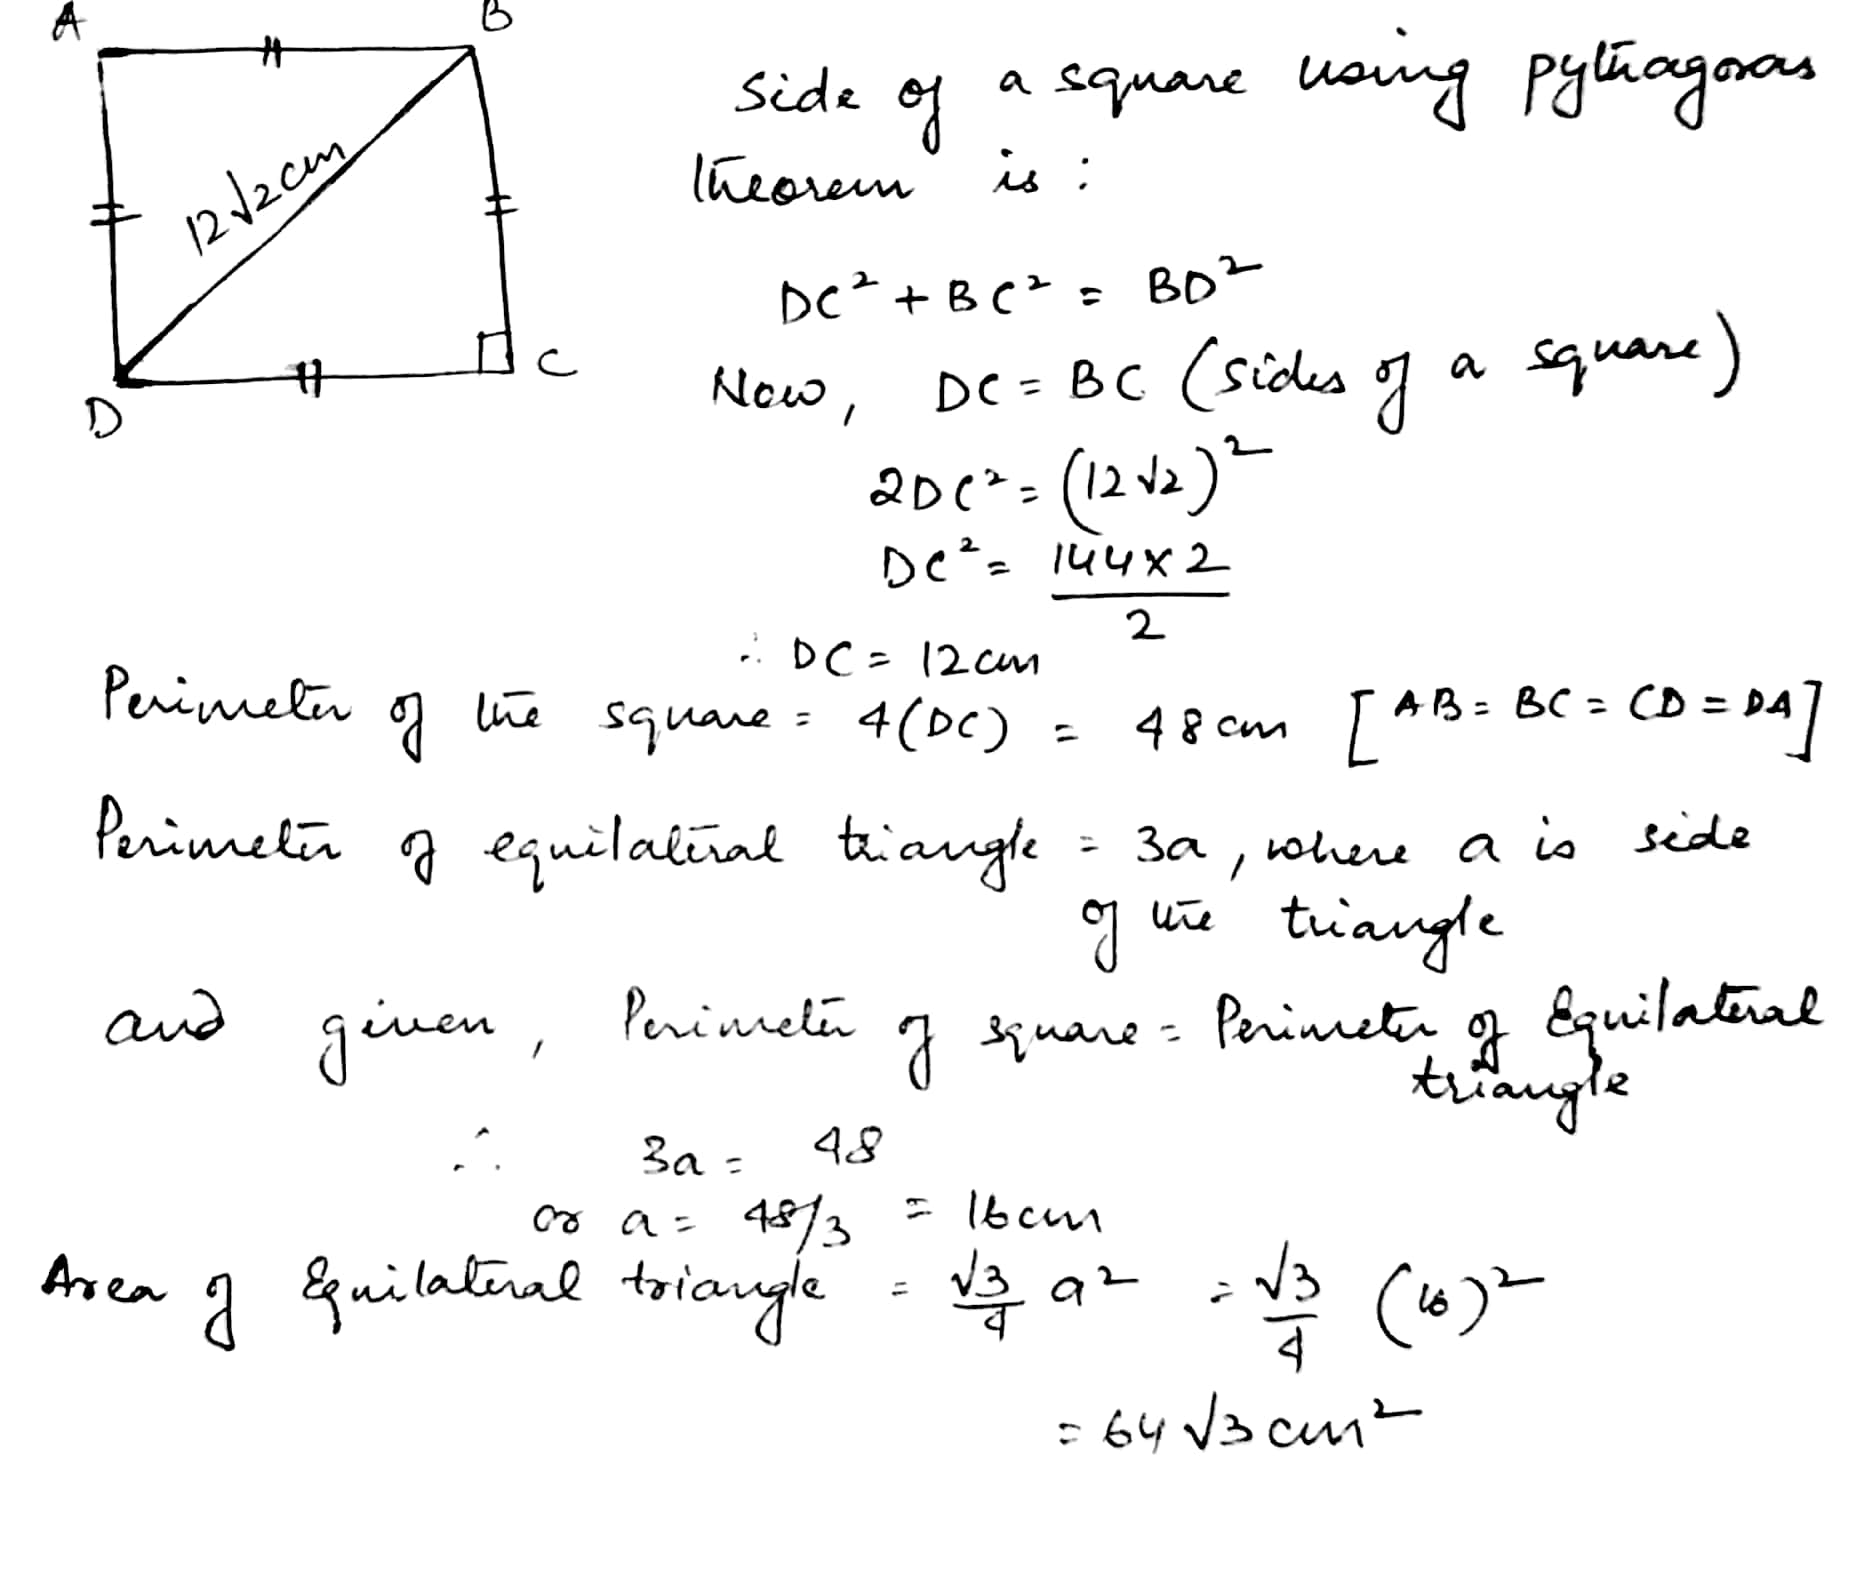 A
B
12√2cm
D
C
side of a square using pythagoras
theorem is :
DC² + BC² = BD²
Now, DC = BC (sides of a square)
2DC² = (12√2)²
DC² = 144×2/2
∴ DC = 12cm
Perimeter of the square = 4(DC) = 48cm [AB = BC = CD = DA]
Perimeter of equilateral triangle = 3a, where a is side
of the triangle
and given, Perimeter of square = Perimeter of Equilateral
triangle
∴ 3a = 48
or a = 48/3 = 16cm
Area of Equilateral triangle = √3/4 a² = √3/4 (16)²
= 64√3cm²